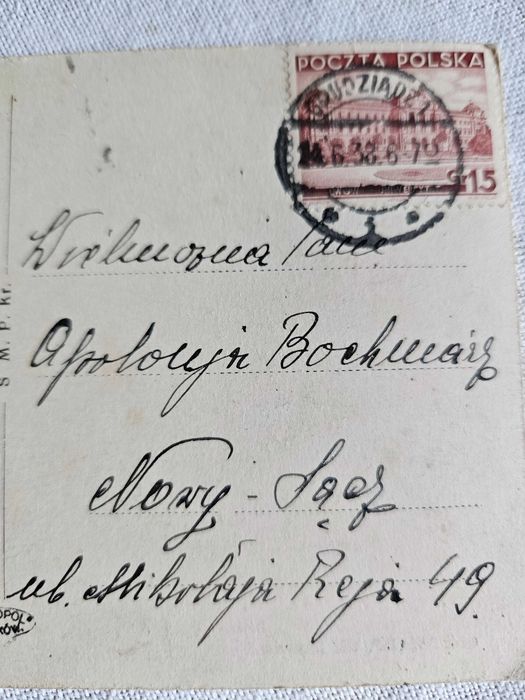 POCZTA POLSKA
GRUDZIĄDZ 1
24.6.38.6-7
Gr 15
Wielmożna Pani
Apolonja Bochniarz
Nowy-Sącz
ul. Mikołaja Reja 49
S M. P. Kr.